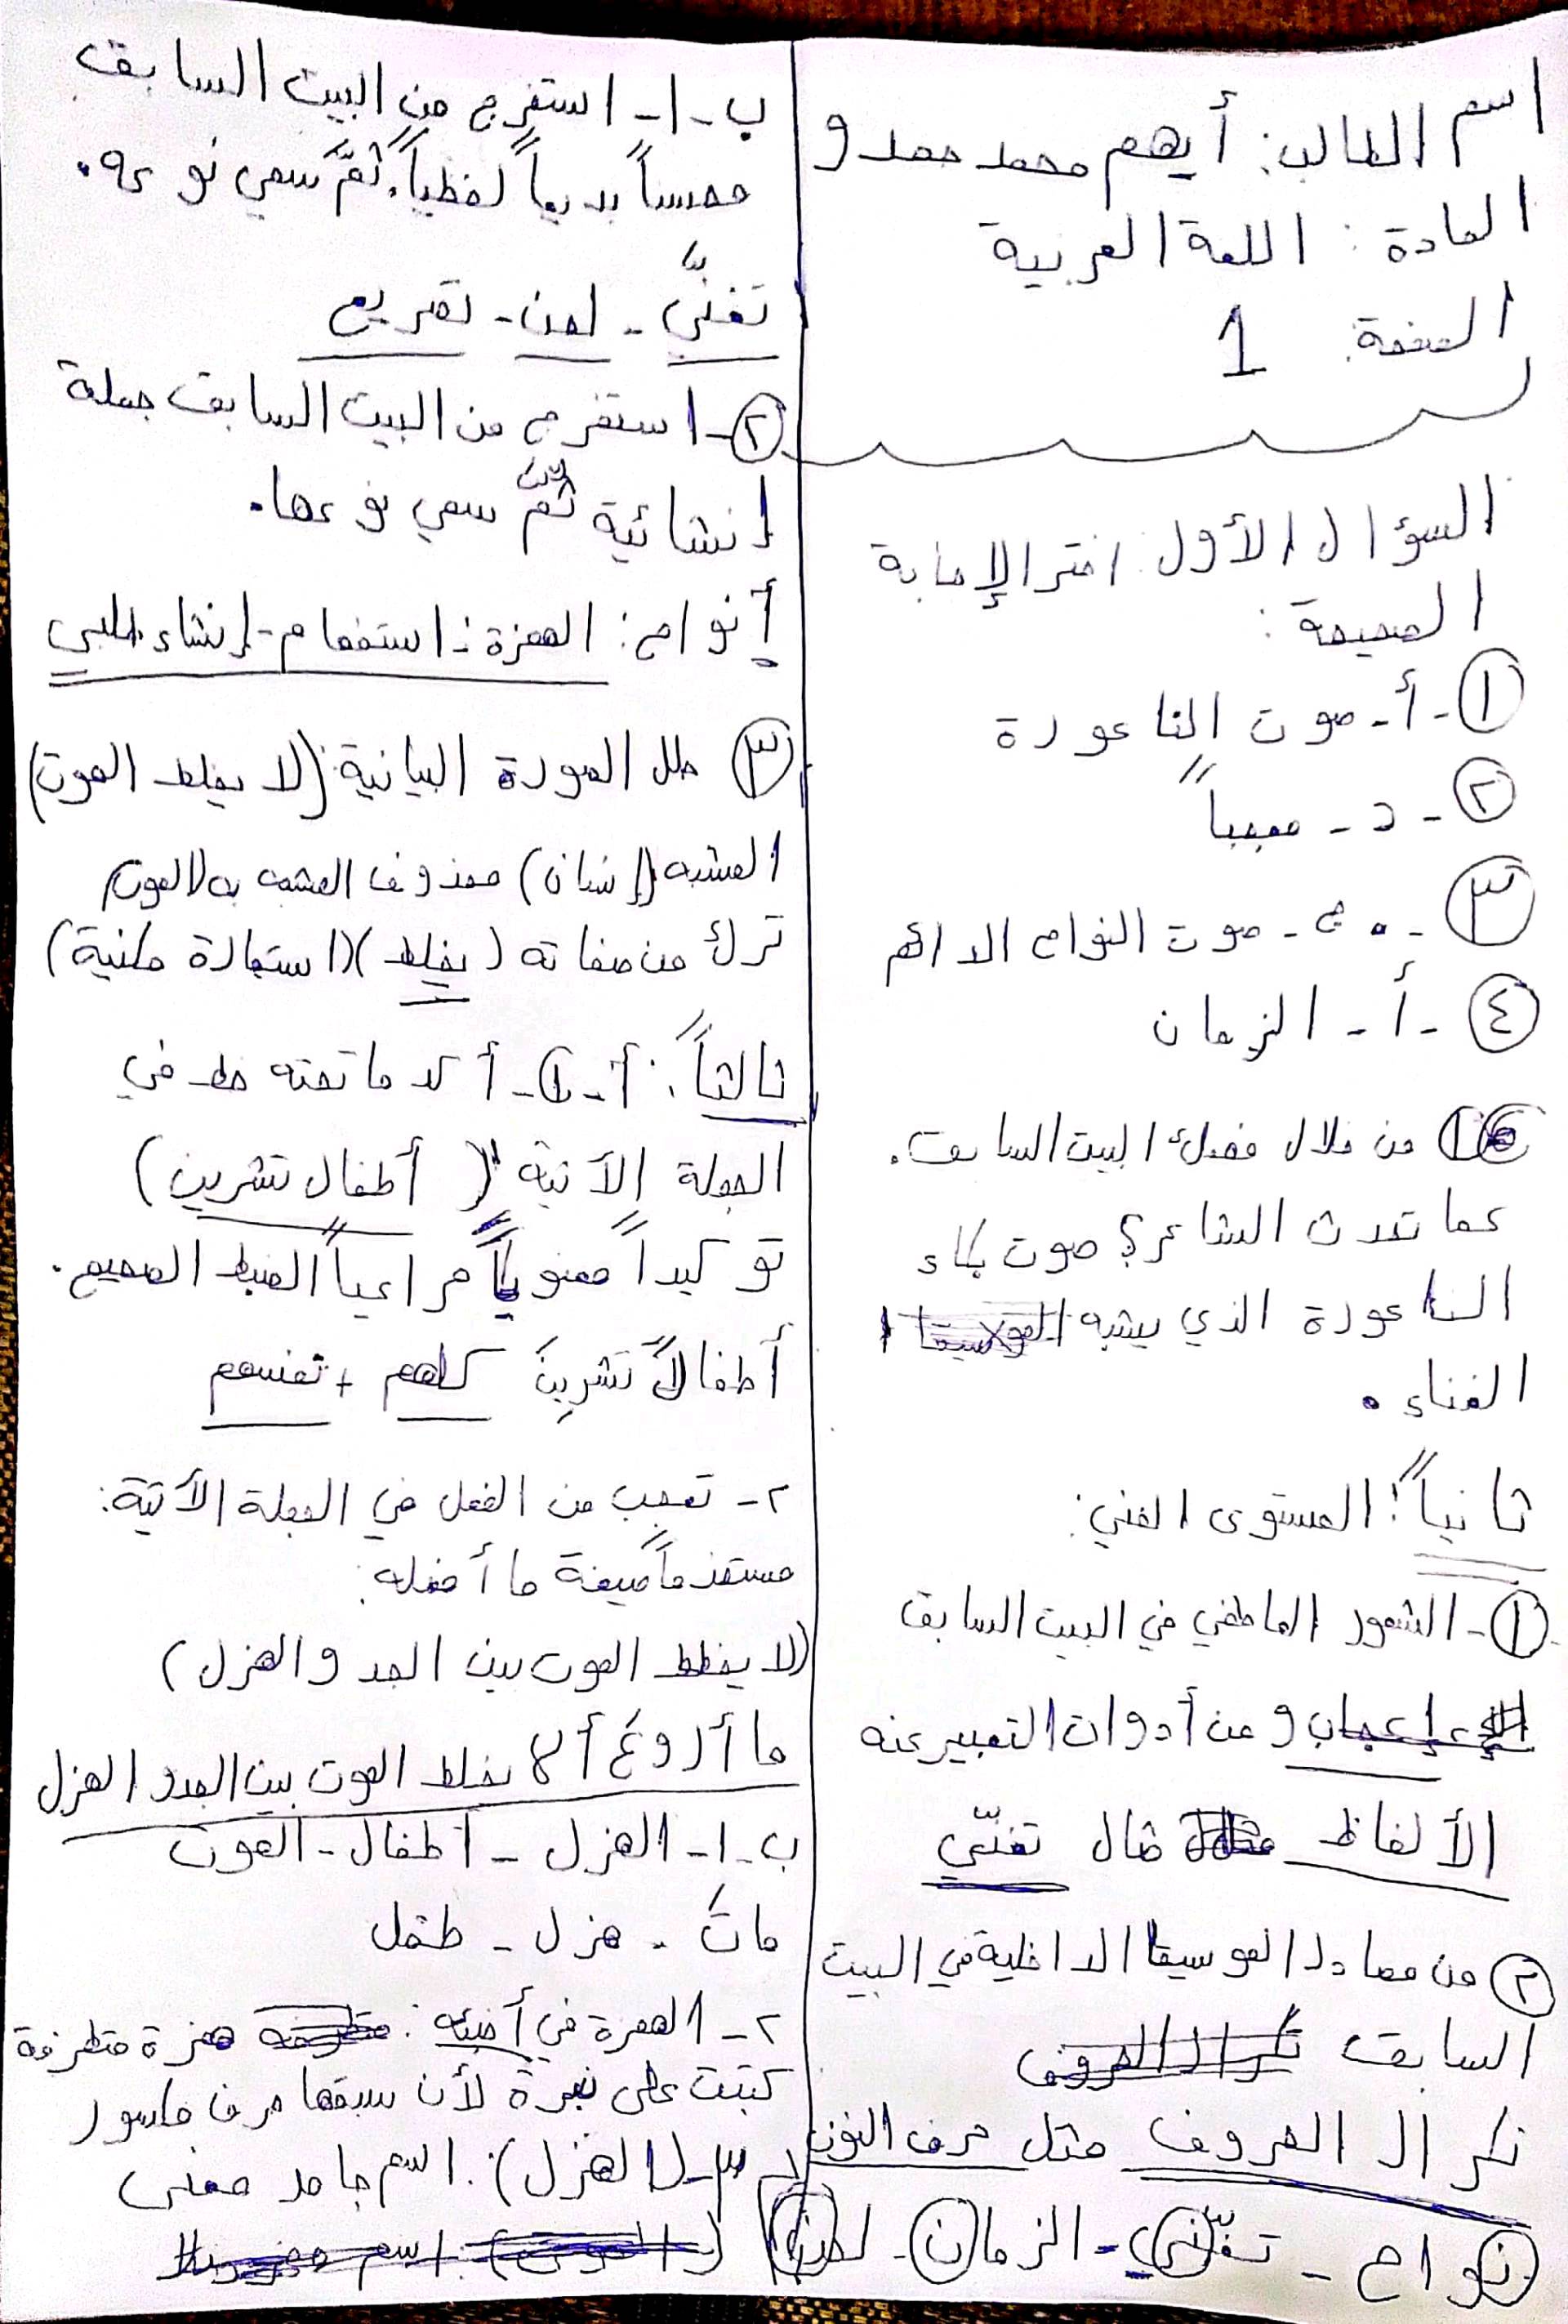 اسم الطالب: أيهم محمد حمدو
المادة: اللغة العربية
الصفحة: 1
السؤال الأول: اختر الإجابة
الصحيحة:
١- أ- صوت الناعورة
٢- د- معجباً
٣- ج- صوت النواح الدائم
٤- أ- الزمان
١ من خلال فهمك البيت السابق.
عما تحدث الشاعر؟ صوت بكاء
الناعورة الذي يشبه
الغناء.
ثانياً: المستوى الفني:
١- الشعور العاطفي في البيت السابق
إعجاب ومن أدوات التعبير عنه
الألفاظ مثال تغنّي
٢ من مصادر الموسيقا الداخلية في البيت
السابق تكرار الحروف
تكرار الحروف مثل حرف النون
نواح - تغنّي - الزمان - لحن
ب-١- استخرج من البيت السابق
محسناً بديعاً لفظياً، ثمَّ سمي نوعه.
تغنّي - لحن - تصريع
٢- استخرج من البيت السابق جملة
إنشائية ثمَّ سمي نوعها.
أنواح: الهمزة: استفهام - إنشاء طلبي
٣ حلل الصورة البيانية: (لا يخلط الموت)
المشبه (إنسان) محذوف المشبه به الموت
ترك من صفاته (يخلط) (استعارة مكنية)
ثالثاً: أ-١- أكد ما تحته خط في
الجملة الآتية: (أطفال تشرين)
توكيداً معنوياً مراعياً الضبط الصحيح.
أطفالَ تشرينَ كلهم + نفسهم
٢- تعجب من الفعل في الجملة الآتية:
مستخدماً صيغة ما أفعله:
(لا يخلط الموت بين الجد والهزل)
ما أروعَ ألا يخلط الموت بين الجد والهزل
ب-١- الهزل - أطفال - الموت
ماتَ - هزل - طفل
٢- الهمزة في أخبئه: همزة متطرفة
كتبت على نبرة لأن سبقها حرف مكسور
٣- (الهزل): اسم جامد معنى